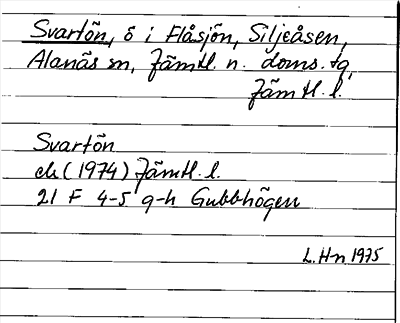 Svartön, ö i Flåsjön, Siljeåsen,
Alanäs sn, Jämtl. n. doms. tg,
Jämtl. l.
Svartön
ek (1974) Jämtl. l.
21 F 4-5 g-h Gubbhögen
L. Hn 1975